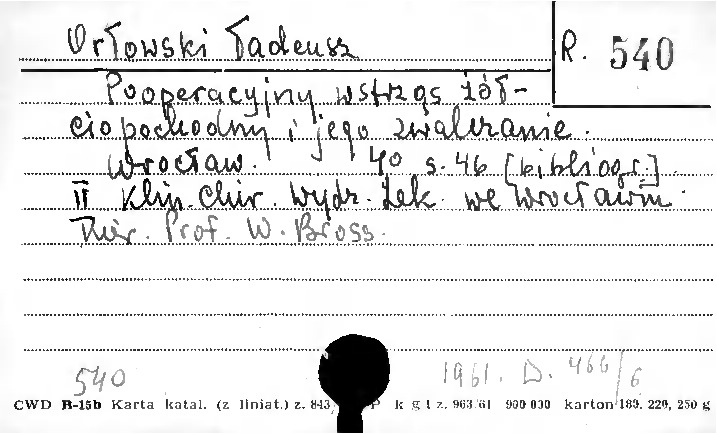 Orłowski Tadeusz
R. 540
Pooperacyjny wstrząs żół-
ciopochodny i jego zwalczanie.
Wrocław. 40 s. 46 [bibliogr.]
II Klin. Chir. Wydz. Lek. we Wrocławiu.
Kier. Prof. W. Bross.
540 1961. D. 466/6
CWD B-15b Karta katal. (z liniat.) z. 843 k g l z. 963/61 900 000 karton 180. 220, 250 g